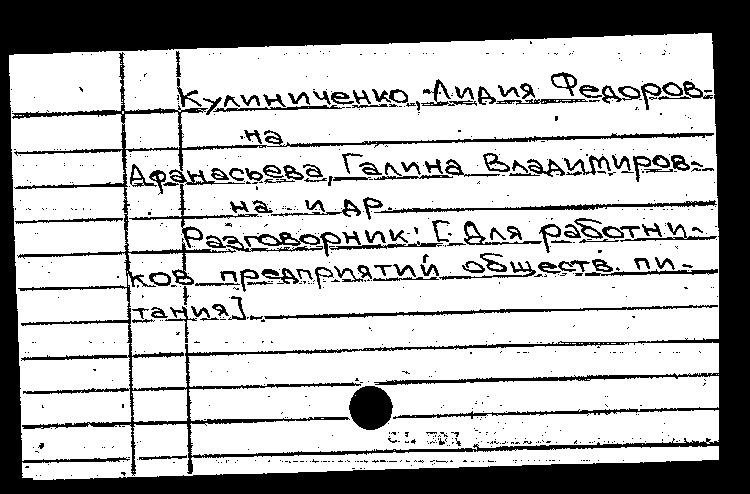 Кулиниченко, Лидия Федоров-
на
Афанасьева, Галина Владимиров-
на и др.
Разговорник: [Для работни-
ков предприятий обществ. пи-
тания].